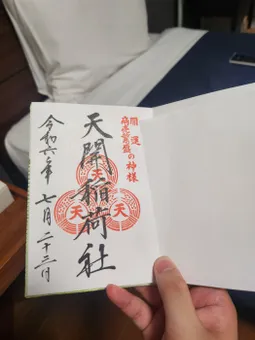 開運
商売繁盛の神様
天開稲荷社
天
天
天
令和六年 七月二十三日